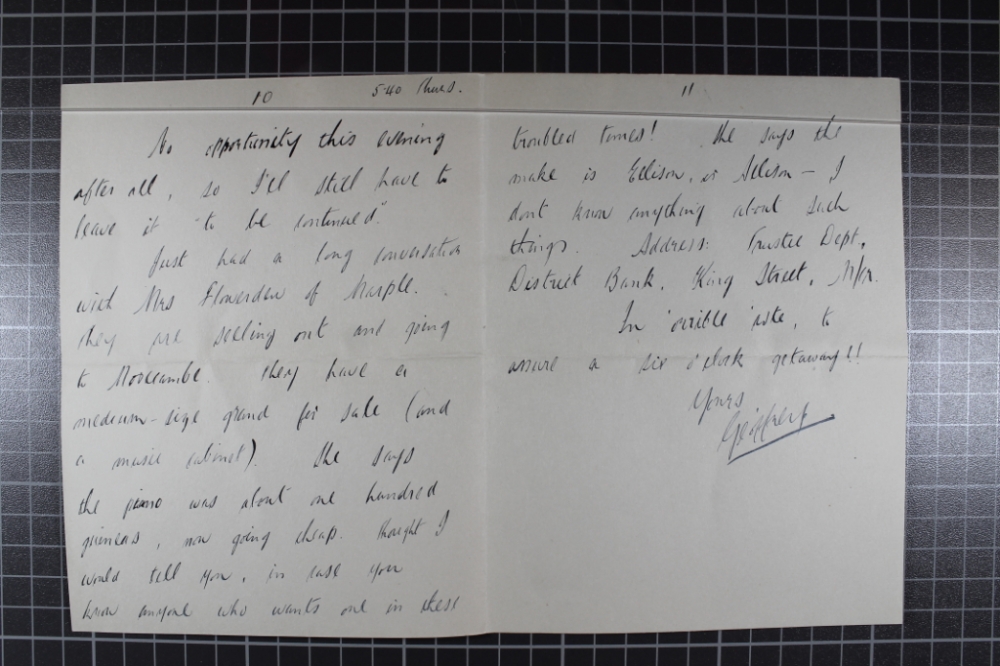 10 5.40 Thurs.
No opportunity this evening
after all, so I'll still have to
leave it "to be continued".
Just had a long conversation
with Mrs Flowerdew of Marple.
They are selling out and going
to Morecambe. They have a
medium-size grand for sale (and
a music cabinet). She says
the piano was about one hundred
guineas, now going cheap. Thought I
would tell you, in case you
know anyone who wants one in these
11
troubled times! She says the
make is Ellison, or Allison — I
don't know anything about such
things. Address: Trustee Dept,
District Bank, King Street, M/cr.
In 'orrible 'aste, to
assure a six o'clock getaway!!
Yours
Geoffrey